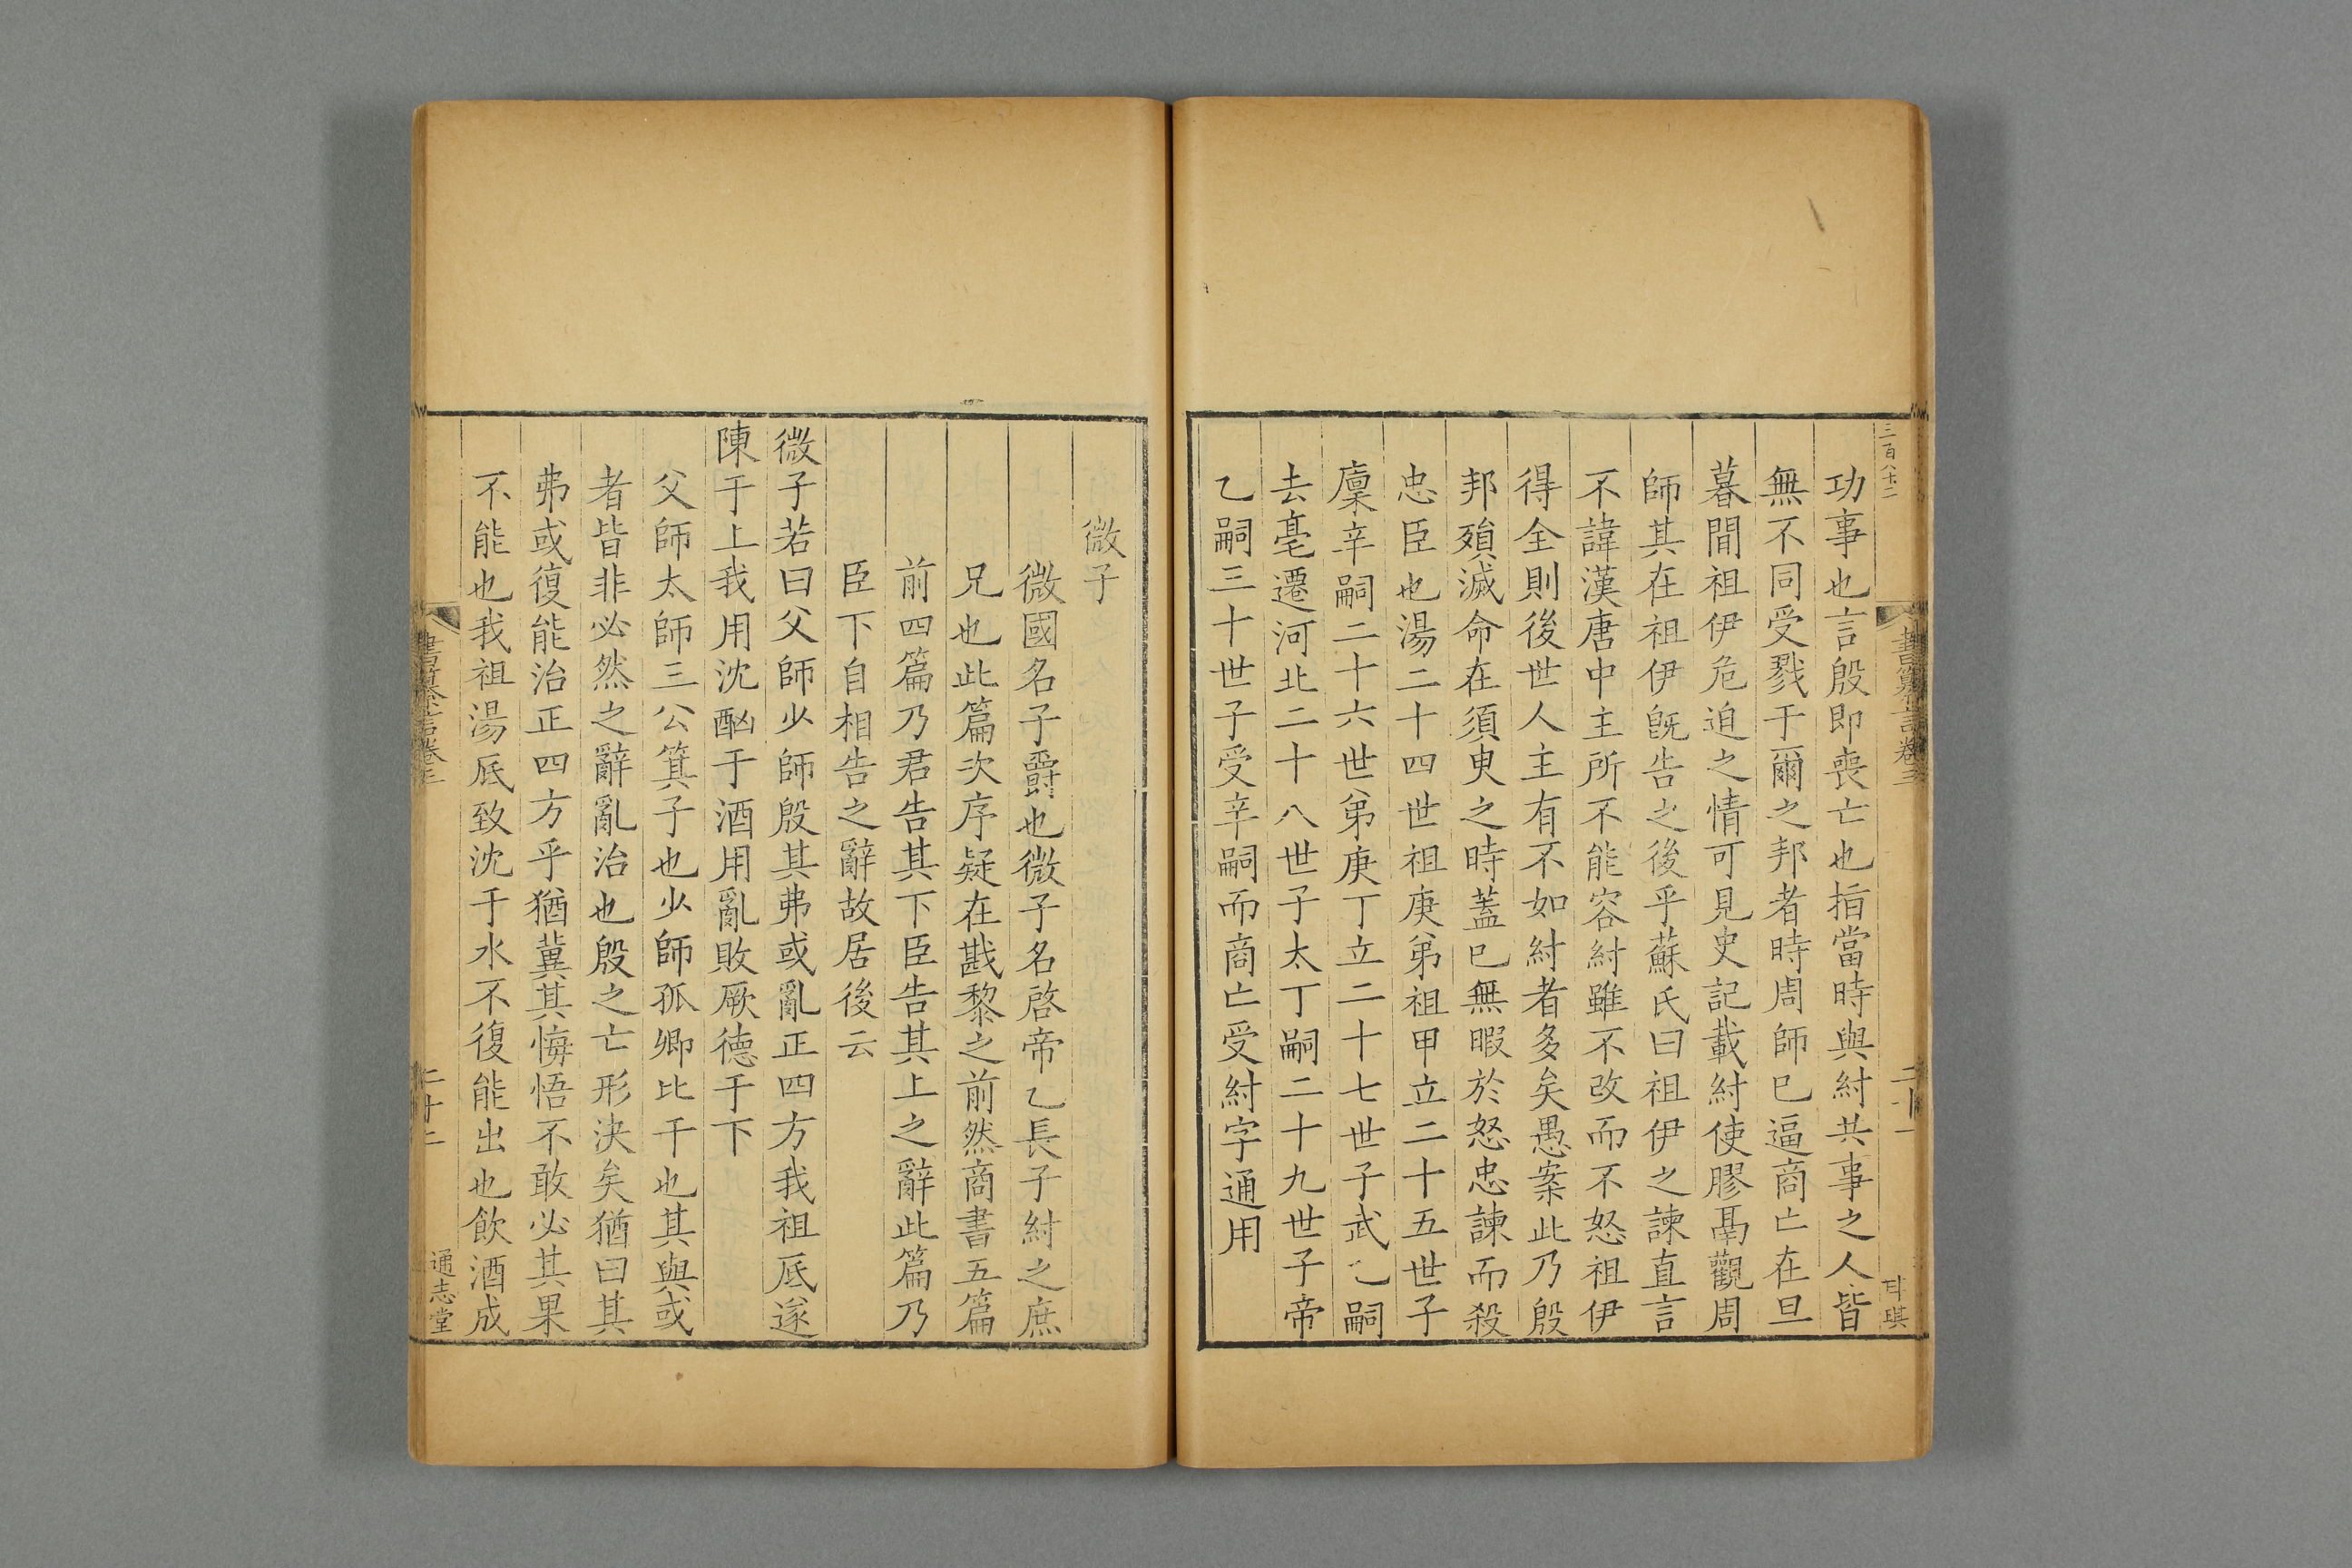 三百八十二
功事也言殷即喪亡也指當時與紂共事之人皆
無不同受戮于爾之邦者時周師已逼商亡在旦
暮間祖伊危迫之情可見史記載紂使膠鬲觀周
師其在祖伊旣告之後乎蘇氏曰祖伊之諫直言
不諱漢唐中主所不能容紂雖不改而不怒祖伊
得全則後世人主有不如紂者多矣愚案此乃殷
邦殞滅命在須臾之時蓋已無暇於怒忠諫而殺
忠臣也湯二十四世祖庚弟祖甲立二十五世子
廩辛嗣二十六世弟庚丁立二十七世子武乙嗣
去亳遷河北二十八世子太丁嗣二十九世子帝
乙嗣三十世子受辛嗣而商亡受紂字通用
微子
微國名子爵也微子名啓帝乙長子紂之庶
兄也此篇次序疑在戡黎之前然商書五篇
前四篇乃君告其下臣告其上之辭此篇乃
臣下自相告之辭故居後云
微子若曰父師少師殷其弗或亂正四方我祖厎遂
陳于上我用沈酗于酒用亂敗厥德于下
父師太師三公箕子也少師孤卿比干也其與或
者皆非必然之辭亂治也殷之亡形決矣猶曰其
弗或復能治正四方乎猶冀其悔悟不敢必其果
不能也我祖湯厎致沈于水不復能出也飲酒成
二十二
通志堂